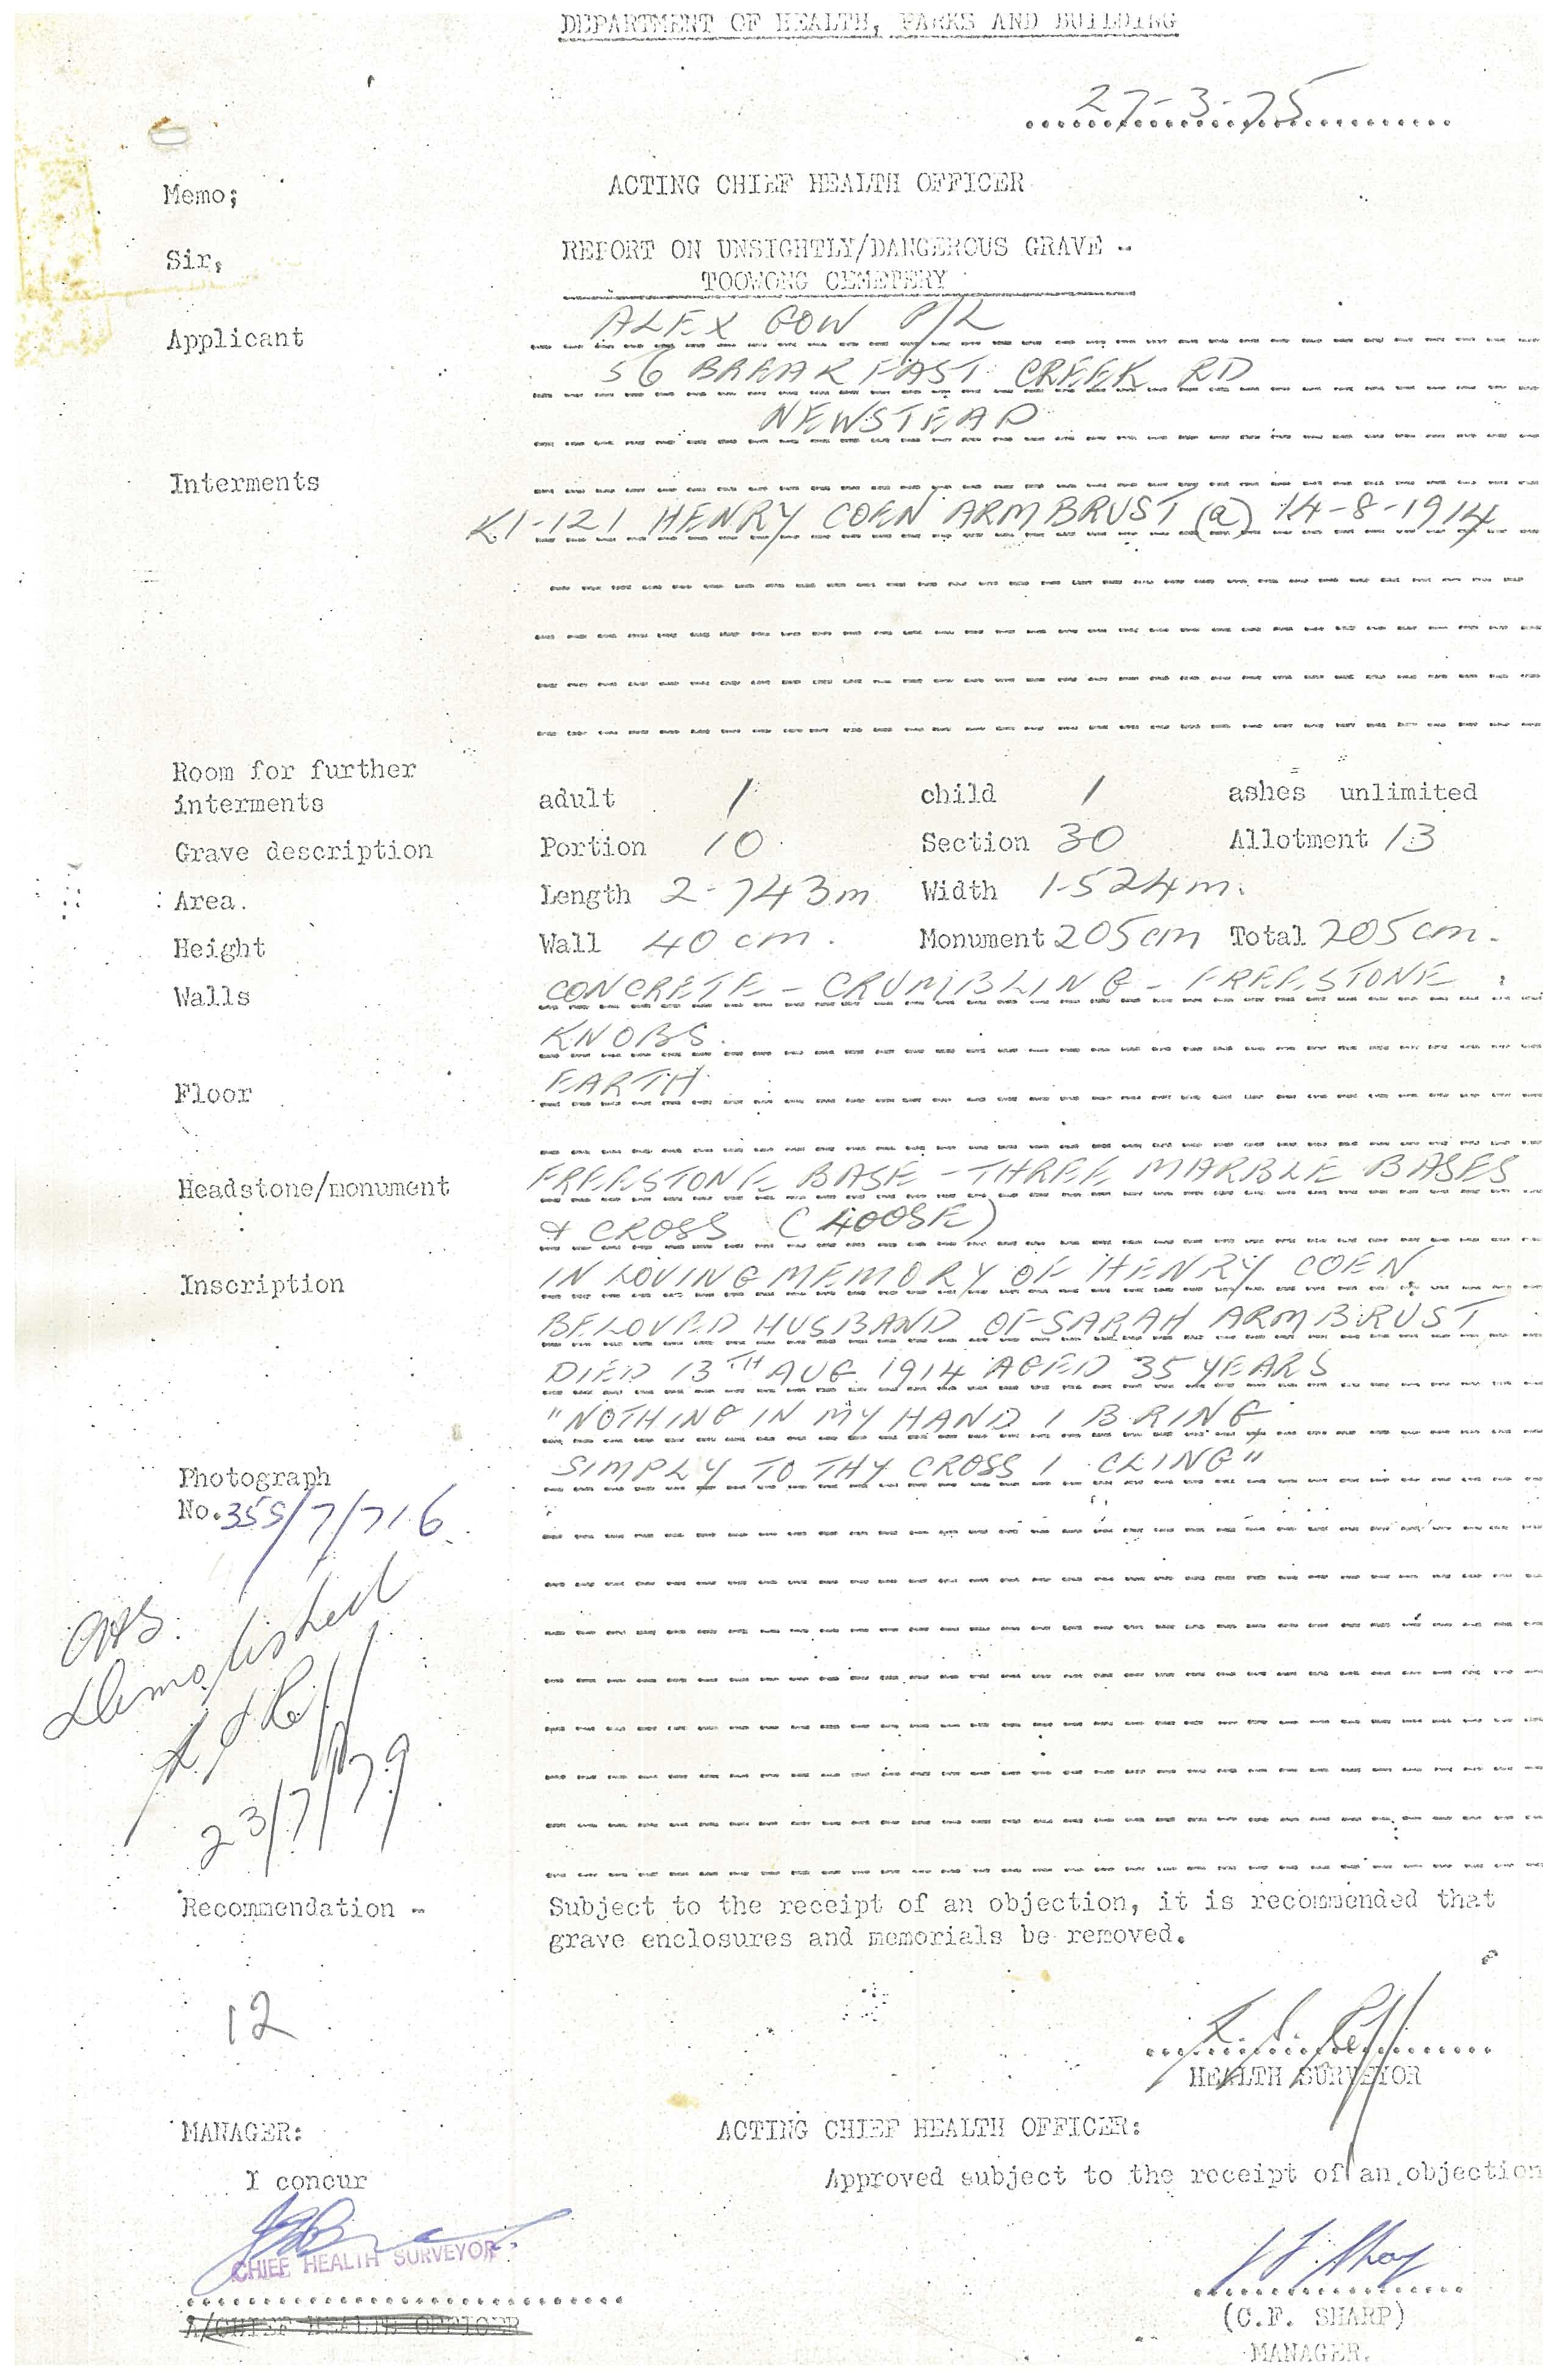 DEPARTMENT OF HEALTH, PARKS AND BUILDING
27-3-75
Memo; ACTING CHIEF HEALTH OFFICER
Sir, REPORT ON UNSIGHTLY/DANGEROUS GRAVE -
TOOWONG CEMETERY
Applicant ALEX GOW P/L
56 BREAKFAST CREEK RD
NEWSTEAD
Interments
K1-121 HENRY COEN ARMBRUST (a) 14-8-1914
Room for further
interments adult 1 child 1 ashes unlimited
Grave description Portion 10 Section 30 Allotment 13
Area. Length 2-743m Width 1-524m.
Height Wall 40 cm. Monument 205cm Total 205cm.
Walls CONCRETE - CRUMBLING - FREESTONE
KNOBS.
Floor EARTH
Headstone/monument FREESTONE BASE - THREE MARBLE BASES
& CROSS (LOOSE)
Inscription IN LOVING MEMORY OF HENRY COEN
BELOVED HUSBAND OF SARAH ARMBRUST
DIED 13TH AUG. 1914 AGED 35 YEARS
"NOTHING IN MY HAND I BRING
SIMPLY TO THY CROSS I CLING"
Photograph
No. 355/7/716
Demolished
23/7/79
Recommendation - Subject to the receipt of an objection, it is recommended that
grave enclosures and memorials be removed.
12
HEALTH SURVEYOR
MANAGER: ACTING CHIEF HEALTH OFFICER:
I concur Approved subject to the receipt of an objection
CHIEF HEALTH SURVEYOR
A/CHIEF HEALTH OFFICER
(C.F. SHARP)
MANAGER.